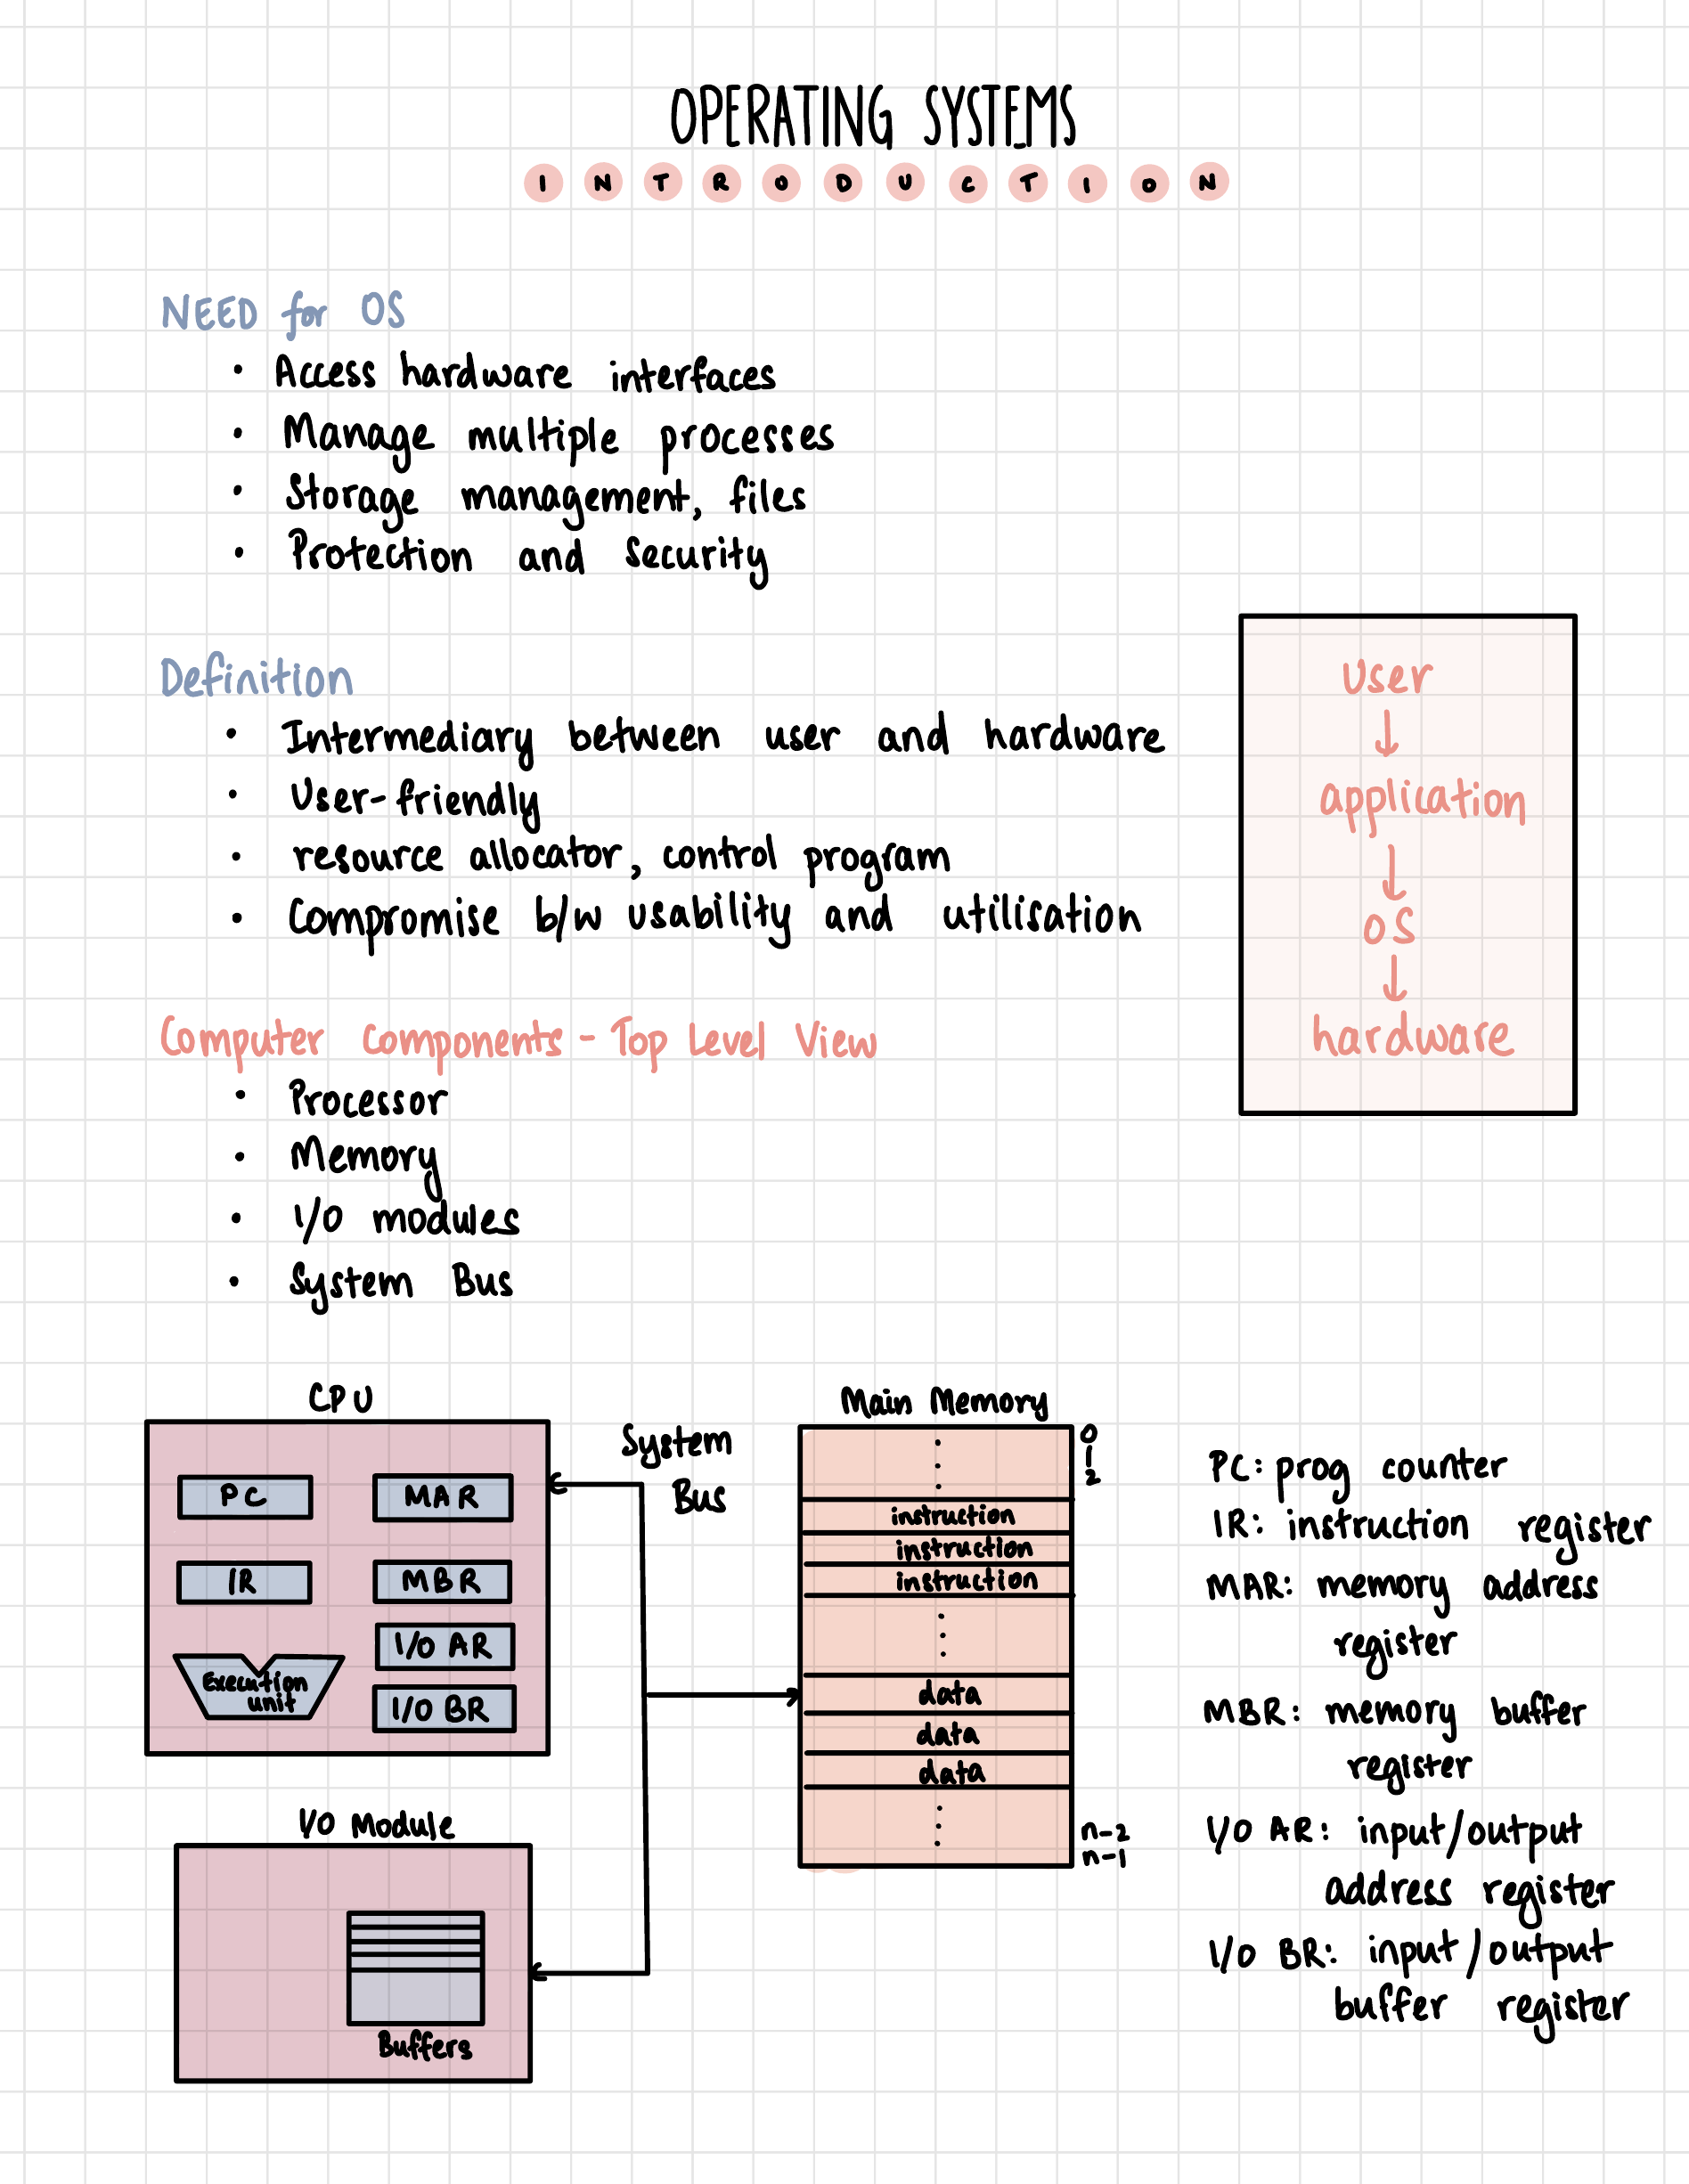 OPERATING SYSTEMS
INTRODUCTION
NEED for OS
• Access hardware interfaces
• Manage multiple processes
• Storage management, files
• Protection and security
Definition
• Intermediary between user and hardware
• User-friendly
• resource allocator, control program
• Compromise b/w usability and utilisation
User
↓
application
↓
OS
↓
hardware
Computer Components - Top Level View
• Processor
• Memory
• I/O modules
• System Bus
CPU
PC
MAR
IR
MBR
I/O AR
Execution
unit
I/O BR
System
Bus
I/O Module
Buffers
Main Memory
0
1
2
instruction
instruction
instruction
data
data
data
n-2
n-1
PC: prog counter
IR: instruction register
MAR: memory address
register
MBR: memory buffer
register
I/O AR: input/output
address register
I/O BR: input/output
buffer register